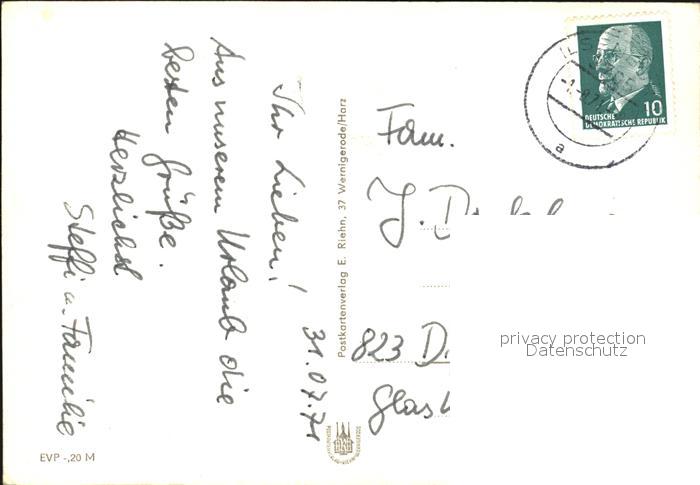 31.07.71
Ihr Lieben!
Aus unserem Urlaub die
besten Grüße.
Herzlichst
Steffi u. Familie
Postkartenverlag E. Riehn, 37 Wernigerode/Harz
EVP -,20 M
DEUTSCHE
DEMOKRATISCHE REPUBLIK
10
a
Fam.
J.
823 D.
privacy protection
Datenschutz